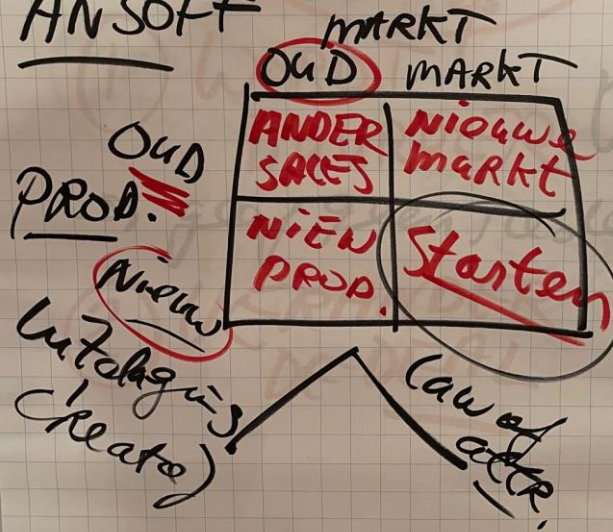 ANSOFF
MARKT
OUD MARKT
OUD
PROD.
Nieuw
ANDER
SALES
Nieuwe
markt
NiEW
PROD.
Starten
Creato)
Law of
attr.